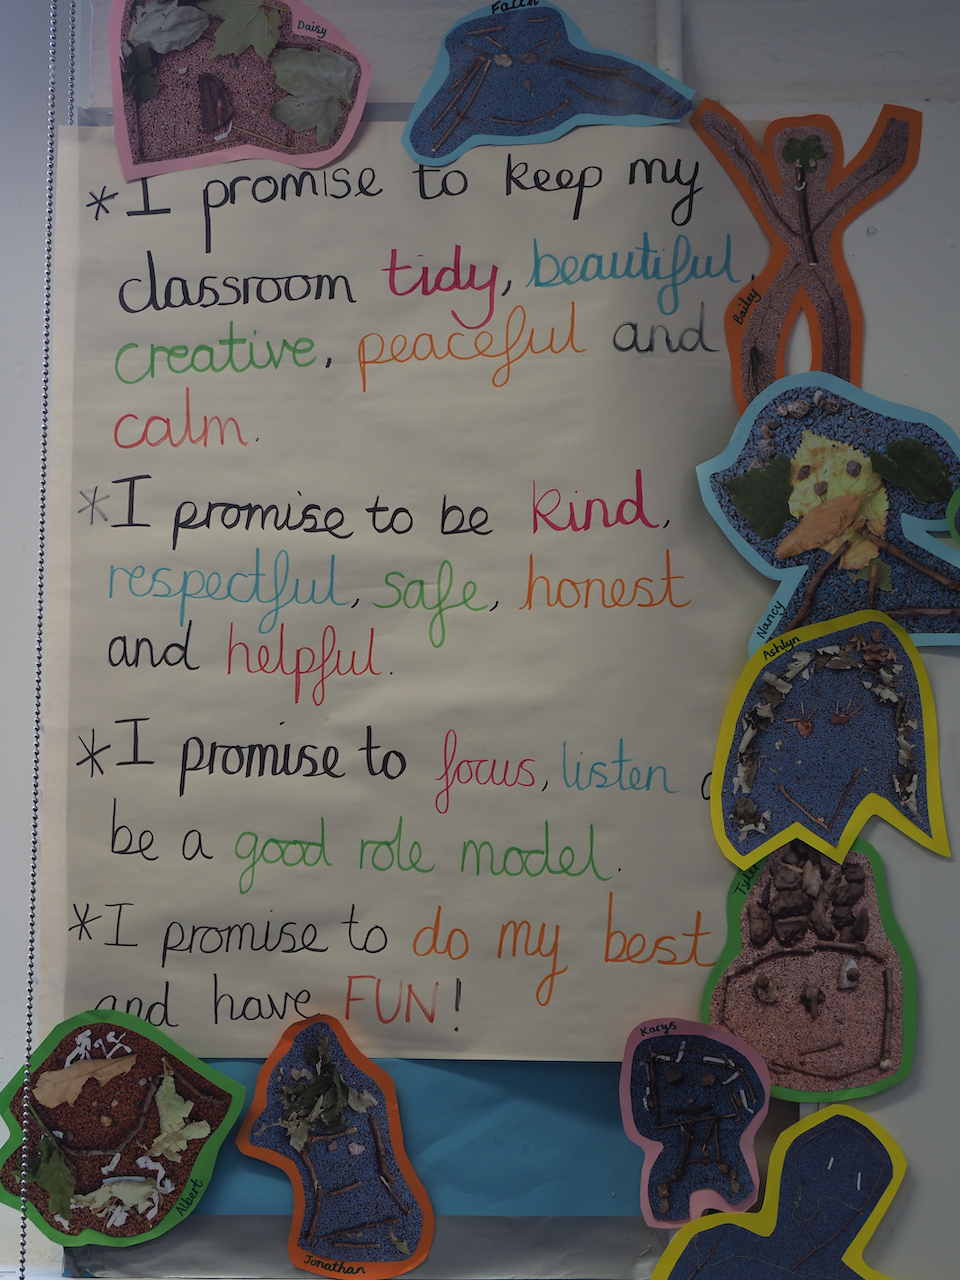 Daisy
Faith
*I promise to keep my
classroom tidy, beautiful,
creative, peaceful and
calm.
*I promise to be kind,
respectful, safe, honest
and helpful.
*I promise to focus, listen
be a good role model.
*I promise to do my best
and have FUN!
Bailey
Nancy
Ashlyn
Karys
Albert
Jonathan